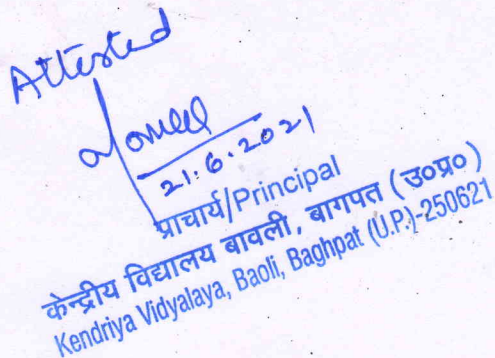 Attested
21.6.2021
प्राचार्य/Principal
केन्द्रीय विद्यालय बावली, बागपत (उ०प्र०)
Kendriya Vidyalaya, Baoli, Baghpat (U.P.)-250621